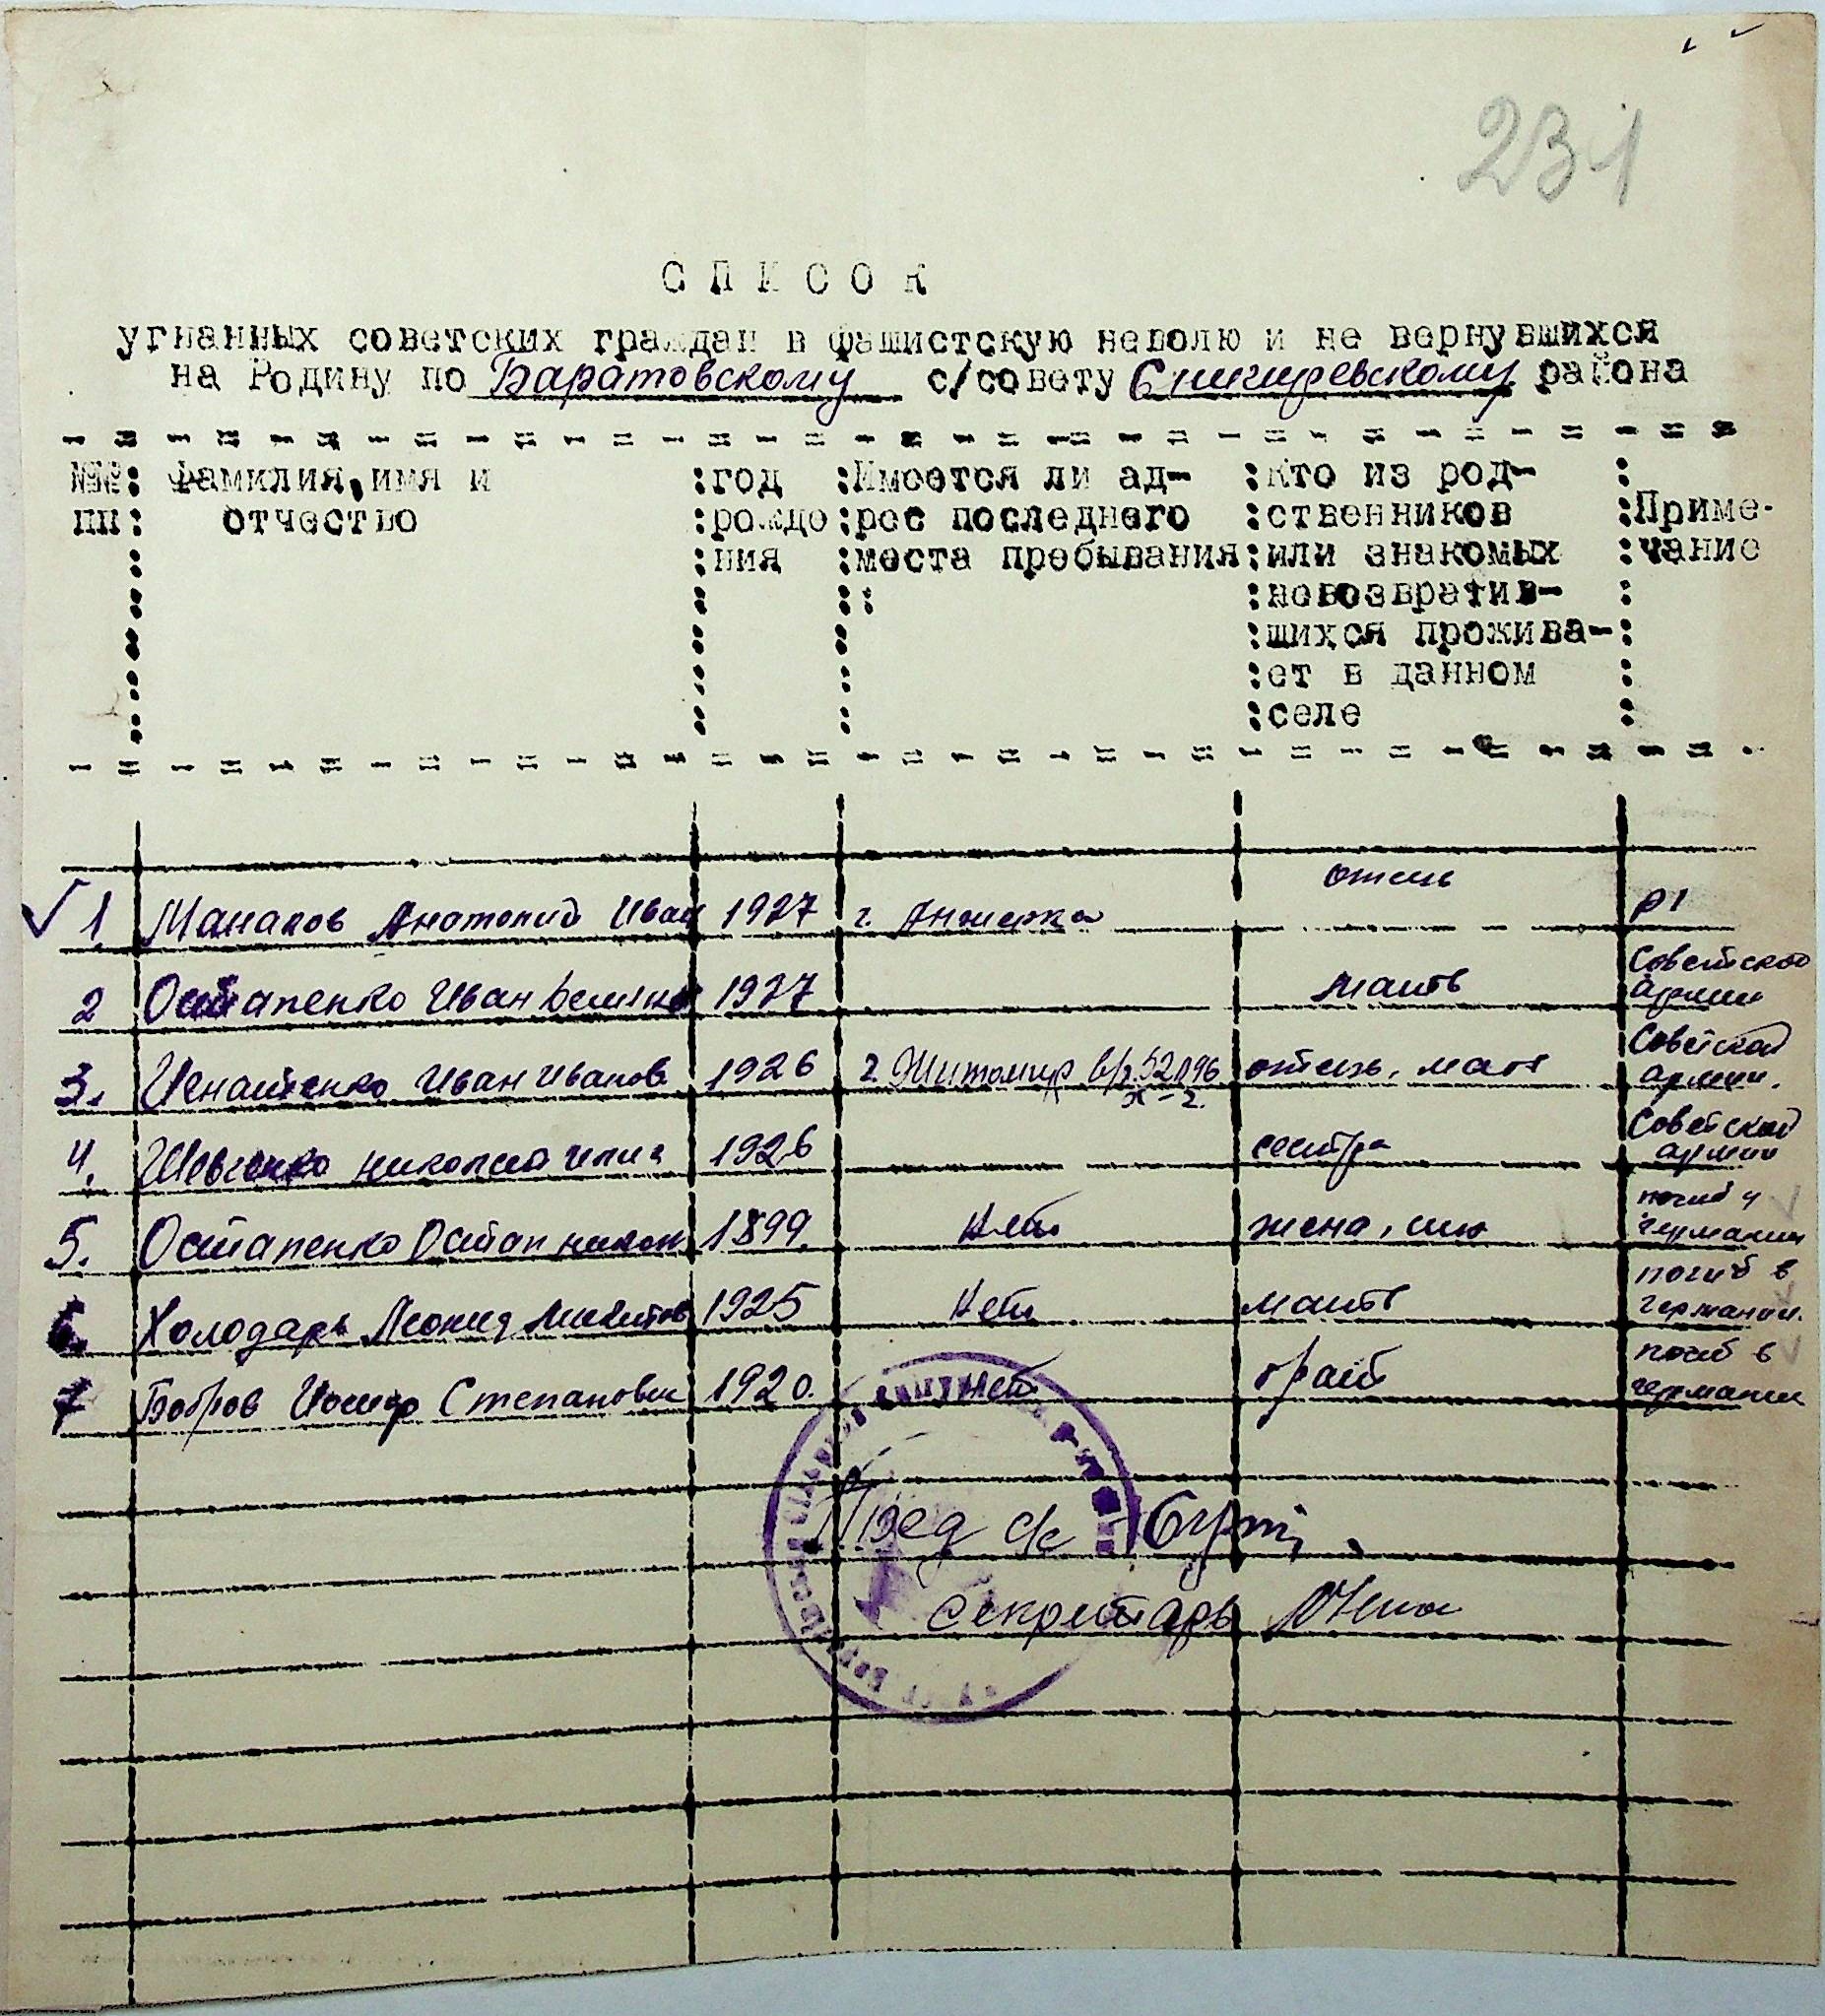 231
СПИСОК
угнанных советских граждан в фашистскую неволю и не вернувшихся
на Родину по Баратовскому с/совету Снигиревскому района
№№ пп : Фамилия, имя и отчество : год рожде ния : Имеется ли ад- рес последнего места пребывания : кто из род- ственников или знакомых невозвратив- шихся прожива- ет в данном селе : Приме- чание
1. Манапов Анатолий Иван 1927 г. Анжерка отець
2 Остапенко Иван 1927 мать Советской армии
3. Игнатенко Иван Иванов 1926 г. Житомир отець, мать Советской армии.
4. Шевченко николай 1926 сестра Советской армии
5. Остапенко Остап никон 1899 Нет жена, погиб у германии
6. Холодарь Леонид Микитов 1925 Нет мать погиб в германии.
7 Бобров Иосиф Степанович 1920. нет брат погиб в германии
Пред с/с
секретарь